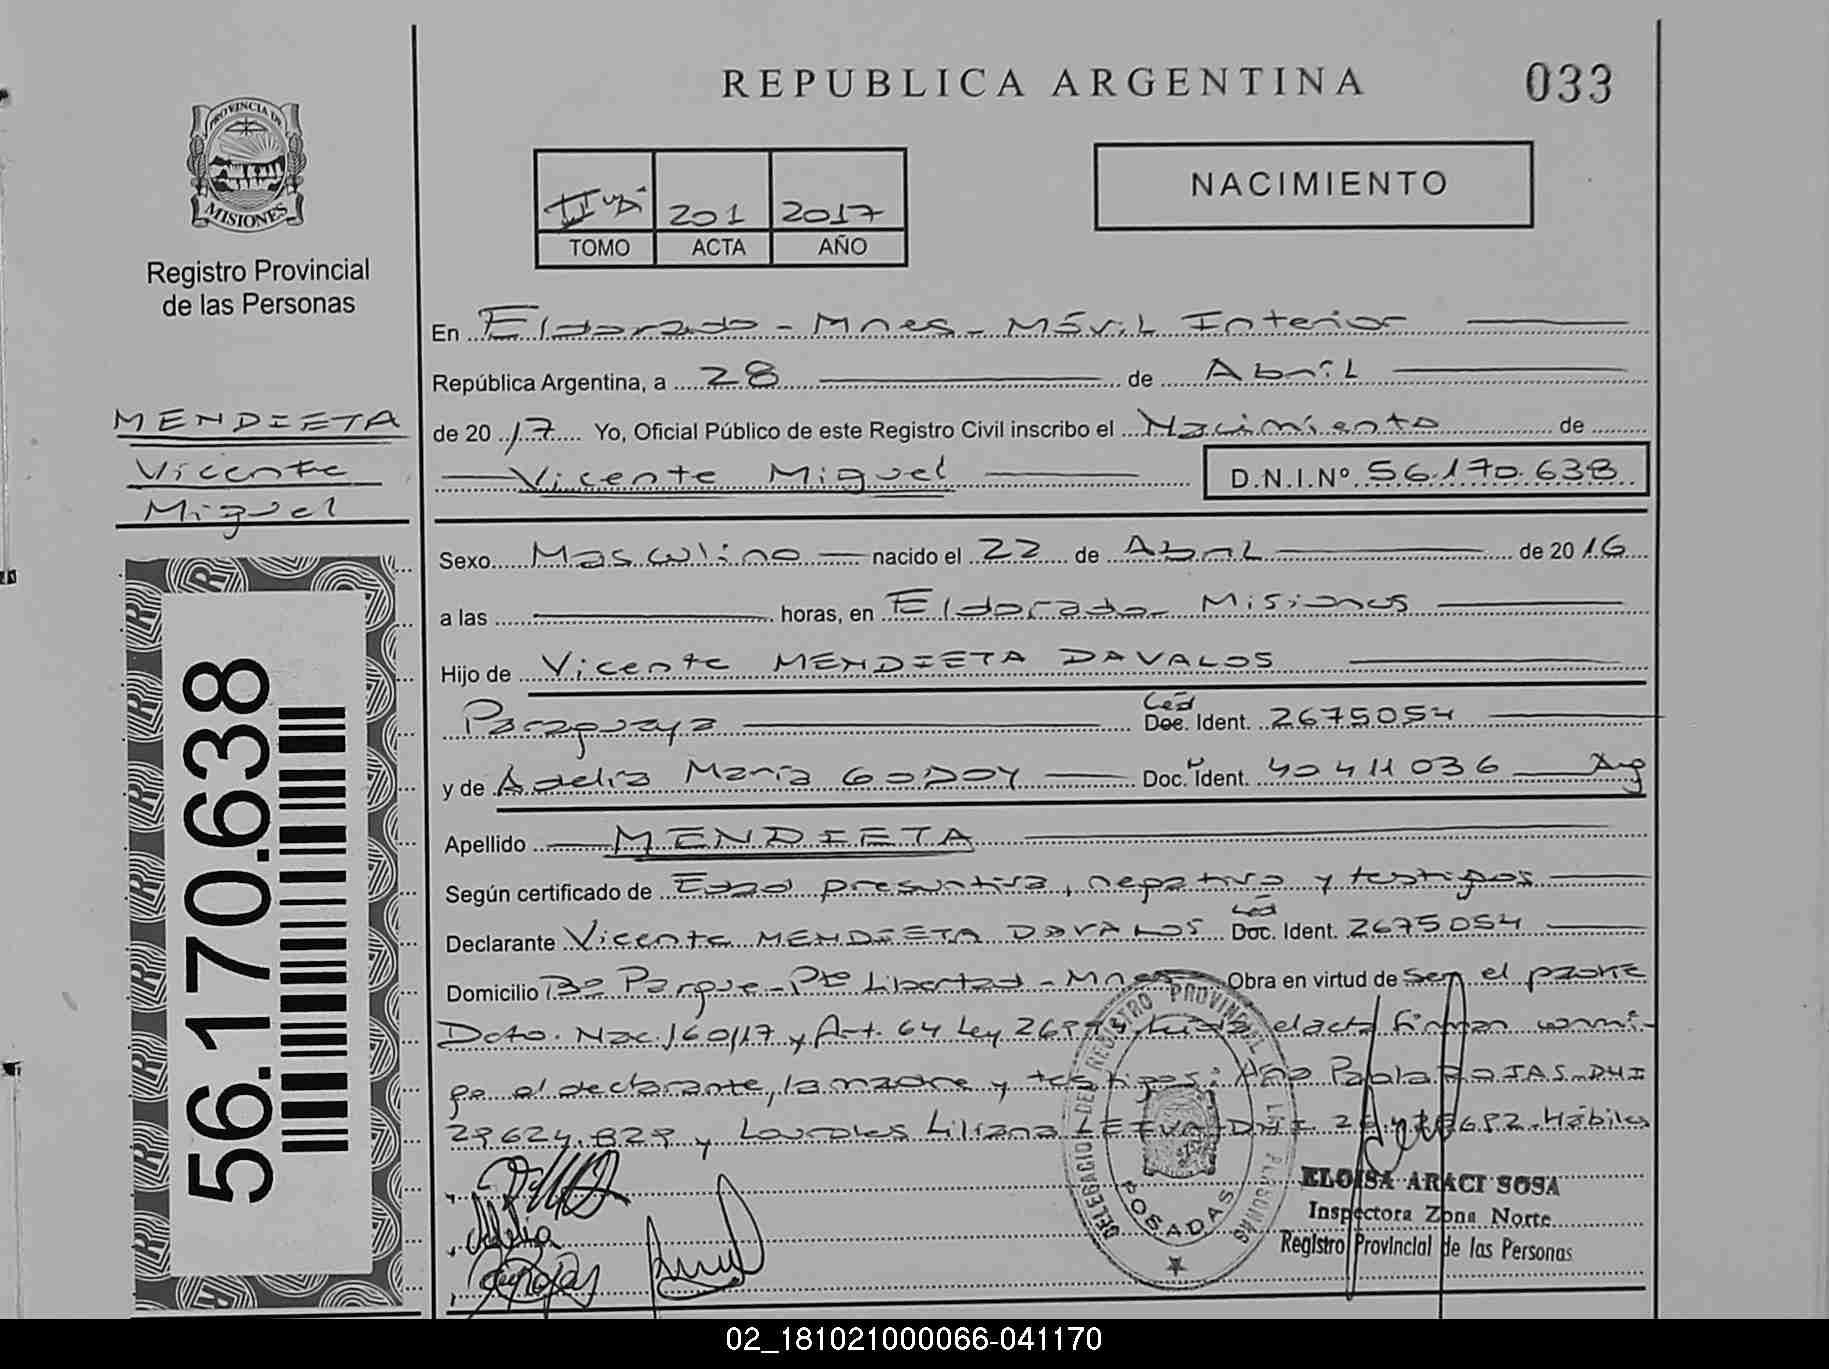 REPUBLICA ARGENTINA
033
PROVINCIA DE
MISIONES
Registro Provincial
de las Personas
201 2017
TOMO ACTA AÑO
NACIMIENTO
En Eldorado - Mnes - Móvil Interior
República Argentina, a 28 de Abril
MENDIETA
Vicente
Miguel
de 20 17 Yo, Oficial Público de este Registro Civil inscribo el Nacimiento de
Vicente Miguel D.N.I.Nº 56.170.638
Sexo Masculino nacido el 22 de Abril de 20 16
a las horas, en Eldorado - Misiones
Hijo de Vicente MENDIETA DAVALOS
Paraguaya Céd Doc. Ident. 2675054
y de Adelia María GODOY Doc. Ident. 40411036 Arg
Apellido MENDIETA
Según certificado de Edad presuntiva, negativo y testigos
Declarante Vicente MENDIETA DAVALOS Céd Doc. Ident. 2675054
Domicilio Bº Parque - Pto Libertad - Mnes Obra en virtud de ser el padre
Dcto. Nac. 160/17 y Art. 64 Ley el acta firman conmi-
go el declarante, la madre y testigos: Ana Paola ROJAS DNI
29624.829 y Lourdes Liliana LEIVA DNI Hábiles
56.170.638
DELEGACION DEL REGISTRO PROVINCIAL DE LAS PERSONAS
POSADAS
ELOISA ARACI SOSA
Inspectora Zona Norte
Registro Provincial de las Personas
Adelia
02_181021000066-041170